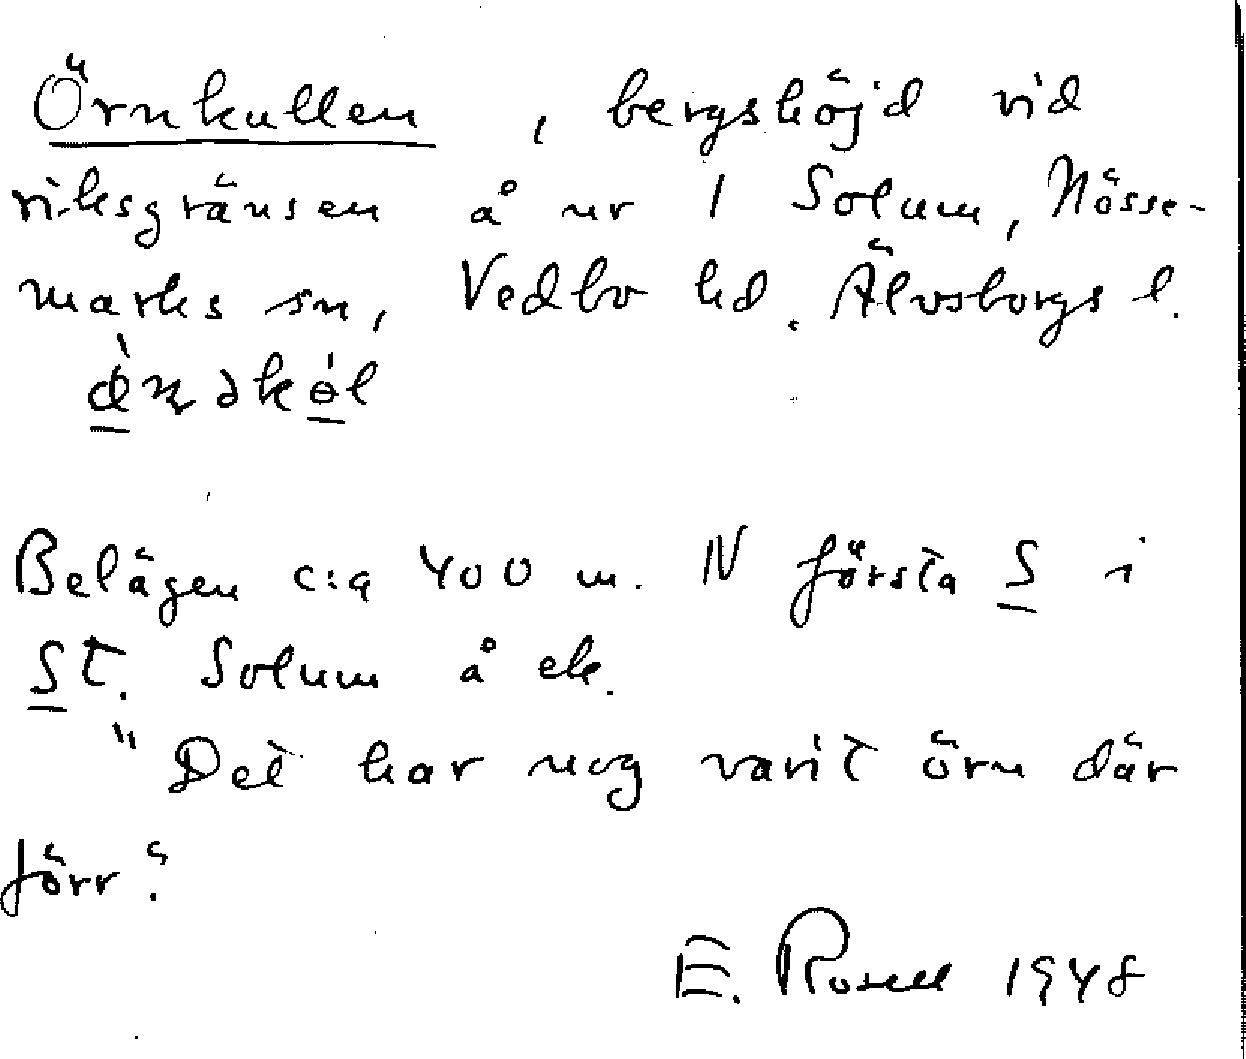 Örnkullen, bergshöjd vid
riksgränsen å nr 1 Solum, Nösse-
marks sn, Vedbo hd. Älvsborgs l.
Belägen c:a 400 m. N första S i
St. Solum å ek.
"Det har nog varit örn där
förr."
E. Rosell 1948